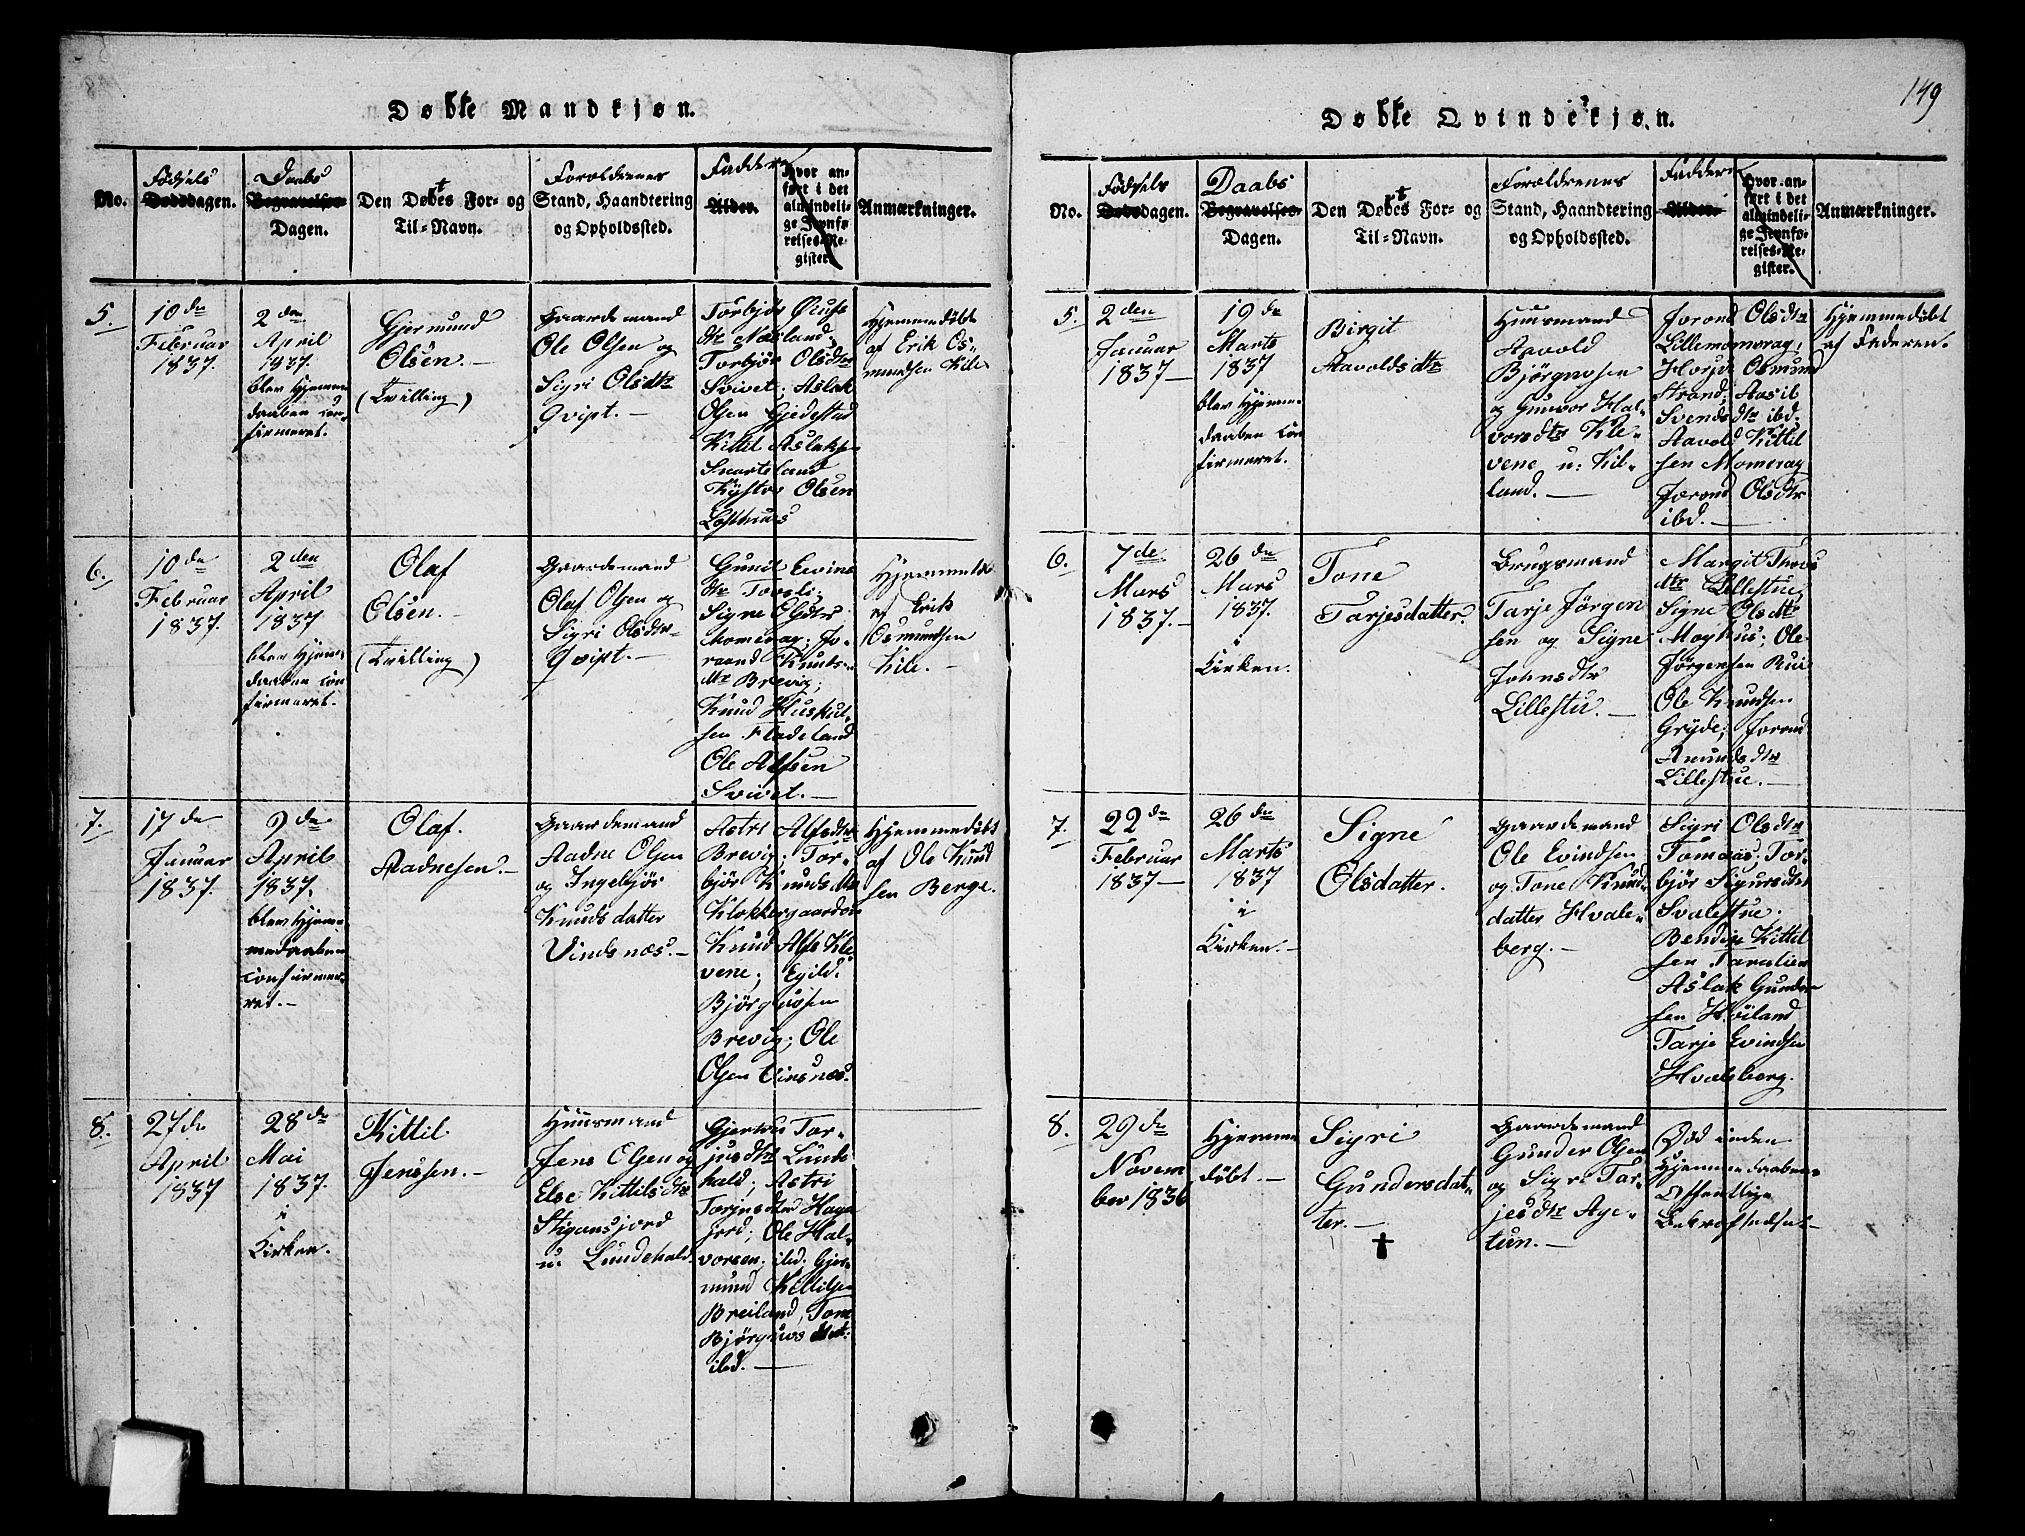 Døbte Mandkjøn.
No.
Fødsels
Dødsdagen.
Daabs
Begravelses-
Dagen.
Den Døbtes For- og
Til-Navn.
Forældrenes
Stand, Haandtering
og Opholdssted.
Faddere
Alder.
Hvor an-
ført i det
almindeli-
ge Jevnfø-
relses-Re-
gister.
Anmærkninger.
5.
10de
Februar
1837.
2den
April
1837.
blev Hjemme
daaben con-
firmeret.
Gjermund
Olsen.
(Tvilling)
Gaardemand
Ole Olsen og
Sigri Olsdtr
Qvipt.
Torbjør
dtr Næsland;
Torbjør Olsdtr
Svivet; Aslak
Olsen Gjedestad
Kittil Aslaks
Snarteland
Olsen
Lofthuus
Hjemmedøbt
af Erik Os-
mundsen Kile
6.
10de
Februar
1837.
2den
April
1837
blev Hjem-
daaben con
firmeret.
Olaf
Olsen.
(Tvilling)
Gaardemand
Olaf Olsen og
Sigri Olsdtr
Qvipt.
Gunil Evins
dtr Tovsli;
Signe Olsdtr
Momrag; Jo-
raand Knuts-
dtr Brevig;
Knud Huskul-
sen Fladeland
Ole Alfsen
Svivet.
Hjemmedøbt
af Erik
Osmundsen
Kile.
7.
17de
Januar
1837.
9de
April
1837.
blev Hjem-
medaaben
confirme-
ret.
Olaf.
Aadnesen.
Gaardemand
Aadne Olsen
og Ingebjør
Knudsdatter
Vindsnæs.
Astri Alfsdtr
Brevig; Tor-
bjør Knudsdtr
Klokkergaarden
Knud Alfs Kle-
vene; Egild
Bjørgufsen
Brevig; Ole
Olsen Vinsnæs.
Hjemmedøbt
af Ole Knud
sen Berge.
8.
27de
April
1837
28de
Mai
1837.
i
Kirken.
Kittil
Jenssen.
Huusmand
Jens Olsen og
Else Kittilsdtr
Stigansjord
u: Lundehald.
Gjertru Tar-
jusdtr Lunde
hald; Astri
Torjusdtr Haga
jord; Ole Hal-
vorsen; ibd; Gjer-
mund Kittilsen
Breiland, Tone
Bjørguvs datr.
ibd.
149
Døbte Qvindekjøn.
No.
Fødsels
Dødsdagen.
Daabs
Begravelses-
Dagen.
Den Døbtes For- og
Til-Navn.
Forældrenes
Stand, Haandtering
og Opholdssted.
Faddere
Alder.
Hvor an-
ført i det
almindeli-
ge Jevnfø-
relses-Re-
gister.
Anmærkninger.
5.
2den
Januar
1837
19de
Marts
1837
blev Hjemme-
daaben con
firmeret.
Birgit
Aavoldsdtr
Huusmand
Aavold
Bjørgnvsen
og Gunvor Hal-
vorsdtr Kle-
vene u: Kil-
land.
Jorond Olsdtr
Lillemomerag;
Osmund
Strand; Aasil
Svendsdtr ibd;
Aavold Kittil
sen Momerag
Jorond Olsdtr
ibd.
Hjemmedøbt
af Faderen.
6.
7de
Mars
1837.
26de
Mars
1837.
i
Kirken.
Tone
Tarjesdatter.
Brugsmand
Tarje Jørgen
sen og Signe
Johnsdtr
Lillestue.
Margit Thovs
dtr Lillestue
Signe Olsdtr
Moghus; Ole
Jørgensen Rui
Ole Knudsen
Gryde; Jorond
Amundsdtr
Lillestue.
7.
22de
Februar
1837
26de
Marts
1837
i
Kirken.
Signe
Olsdatter.
Gaardemand
Ole Evindsen
og Tone Knud-
datter Hvale-
berg.
Sigri Olsdtr
Tomaas; Tor-
bjør Sigursdtr
Svalestue.
Bendix Kittil
sen Taralien
Aslak Gunder
sen Høiland
Tarje Evindsen
Hvalsberg.
8.
29de
Novem
ber 1836
Hjemme
døbt.
Sigri
Gundersdat-
ter.
†
Gaardemand
Gunder Olsen
og Sigri Tar-
jesdtr Aye-
tun.
Død inden
Hjemmedaabens
Offentlige
Bekræftedse.